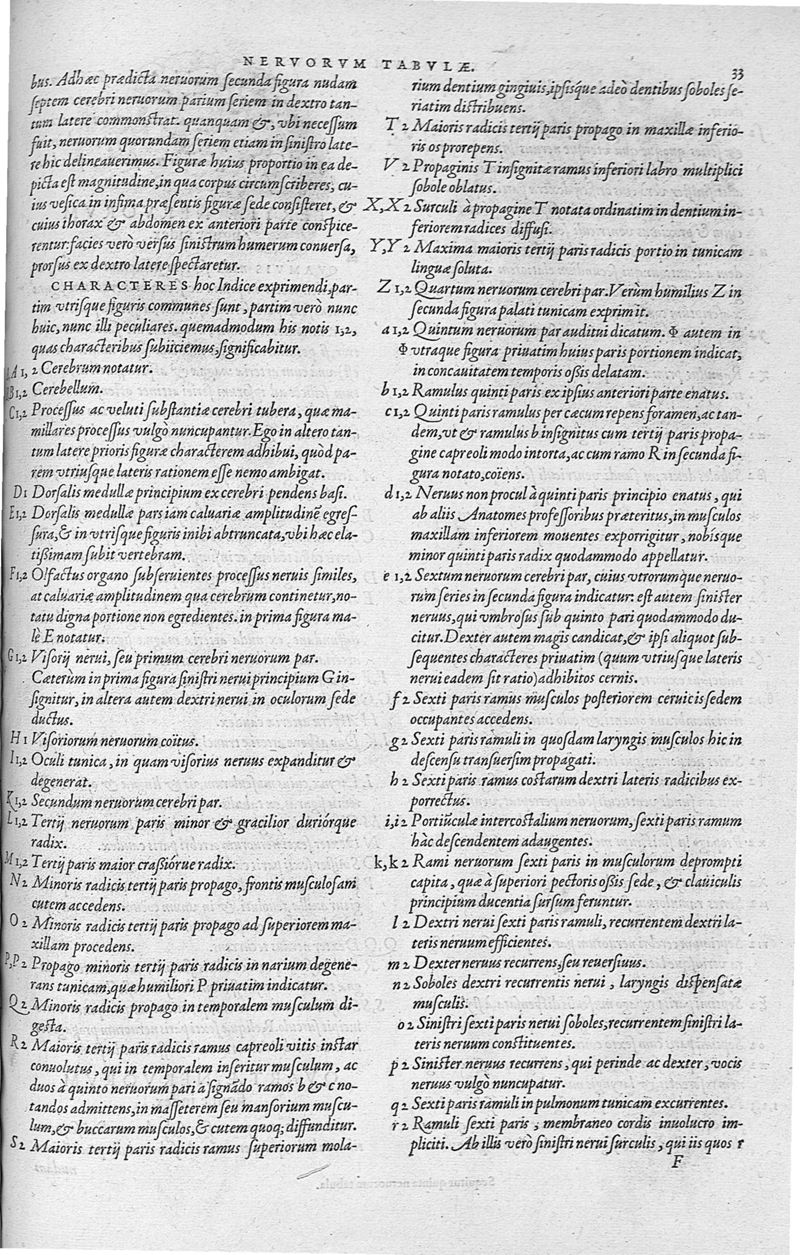 NERVORVM TABVLÆ.
33
bus. Adhæc prædicta neruorum secunda figura nudam
septem cerebri neruorum parium seriem in dextro tan-
tum latere commonstrat. quanquam &, vbi necessum
fuit, neruorum quorundam seriem etiam in sinistro late-
re hic delineauerimus. Figuræ huius proportio in ea de-
picta est magnitudine, in qua corpus circumscriberes, cu-
ius vesica in infima præsentis figuræ sede consisteret, &
cuius thorax & abdomen ex anteriori parte conspice-
rentur: facies verò versus sinistrum humerum conuersa,
prorsus ex dextro latere spectaretur.
CHARACTERES hoc Indice exprimendi, par-
tim vtrisque figuris communes sunt, partim verò nunc
huic, nunc illi peculiares. quemadmodum his notis 1,2,
quas characteribus subijciemus, significabitur.
A 1, 2 Cerebrum notatur.
B1,2 Cerebellum.
C1,2 Processus ac veluti substantiæ cerebri tubera, quæ ma-
millares processus vulgò nuncupantur. Ego in altero tan-
tum latere prioris figuræ characterem adhibui, quòd pa-
rem vtriusque lateris rationem esse nemo ambigat.
D1 Dorsalis medullæ principium ex cerebri pendens basi.
E1,2 Dorsalis medullæ pars iam caluariæ amplitudinẽ egres-
sura, & in vtrisque figuris inibi abtruncata, vbi hæc ela-
tißimam subit vertebram.
F1,2 Olfactus organo subseruientes processus neruis similes,
at caluariæ amplitudinem qua cerebrum continetur, no-
tatu digna portione non egredientes. in prima figura ma-
lè E notatur.
G1,2 Visorij nerui, seu primum cerebri neruorum par.
Cæterum in prima figura sinistri nerui principium G in-
signitur, in altera autem dextri nerui in oculorum sede
ductus.
H1 Visoriorum neruorum coitus.
I1,2 Oculi tunica, in quam visorius neruus expanditur &
degenerat.
K1,2 Secundum neruorum cerebri par.
L1,2 Tertij neruorum paris minor & gracilior duriórque
radix.
M1,2 Tertij paris maior craßiórue radix.
N2 Minoris radicis tertij paris propago, frontis musculosam
cutem accedens.
O 2 Minoris radicis tertij paris propago ad superiorem ma-
xillam procedens.
P,P2 Propago minoris tertij paris radicis in narium degene-
rans tunicam, quæ humiliori P priuatim indicatur.
Q2 Minoris radicis propago in temporalem musculum di-
gesta.
R2 Maioris tertij paris radicis ramus capreoli vitis instar
conuolutus, qui in temporalem inseritur musculum, ac
duos à quinto neruorum pari à signãdo ramos b & c no-
tandos admittens, in masseterem seu mansorium muscu-
lum, & buccarum musculos, & cutem quoq; diffunditur.
S2 Maioris tertij paris radicis ramus superiorum mola-
rium dentium gingiuis, ipsísque adeò dentibus soboles se-
riatim distribuens.
T2 Maioris radicis tertij paris propago in maxillæ inferio-
ris os prorepens.
V2 Propaginis T insignitæ ramus inferiori labro multiplici
sobole oblatus.
X,X2 Surculi à propagine T notata ordinatim in dentium in-
feriorem radices diffusi.
Y,Y2 Maxima maioris tertij paris radicis portio in tunicam
linguæ soluta.
Z 1,2 Quartum neruorum cerebri par. Verùm humilius Z in
secunda figura palati tunicam exprimit.
a 1,2 Quintum neruorum par auditui dicatum. Φ autem in
Φ vtraque figura priuatim huius paris portionem indicat,
in concauitatem temporis oßis delatam.
b 1,2 Ramulus quinti paris ex ipsius anteriori parte enatus.
c 1,2 Quinti paris ramulus per cæcum repens foramen, ac tan-
dem, vt & ramulus b insignitus cum tertij paris propa-
gine capreoli modo intorta, ac cum ramo R in secunda fi-
gura notato, coiens.
d 1,2 Neruus non procul à quinti paris principio enatus, qui
ab aliis Anatomes professoribus præteritus, in musculos
maxillam inferiorem mouentes exporrigitur, nobísque
minor quinti paris radix quodammodo appellatur.
e 1,2 Sextum neruorum cerebri par, cuius vtrorumque neruo-
rum series in secunda figura indicatur: est autem sinister
neruus, qui vmbrosus sub quinto pari quodammodo du-
citur. Dexter autem magis candicat, & ipsi aliquot sub-
sequentes characteres priuatim (quum vtriusque lateris
nerui eadem sit ratio) adhibitos cernis.
f 2 Sexti paris ramus musculos posteriorem ceruicis sedem
occupantes accedens.
g 2 Sexti paris ramuli in quosdam laryngis musculos hic in
descensu transuersim propagati.
h 2 Sexti paris ramus costarum dextri lateris radicibus ex-
porrectus.
i,i2 Portiũculæ intercostalium neruorum, sexti paris ramum
hàc descendentem adaugentes.
k,k2 Rami neruorum sexti paris in musculorum deprompti
capita, quæ à superiori pectoris oßis sede, & clauiculis
principium ducentia sursum feruntur.
l 2 Dextri nerui sexti paris ramuli, recurrentem dextri la-
teris neruum efficientes.
m 2 Dexter neruus recurrens, seu reuersiuus.
n 2 Soboles dextri recurrentis nerui, laryngis dispensatæ
musculis.
o 2 Sinistri sexti paris nerui soboles, recurrentem sinistri la-
teris neruum constituentes.
p 2 Sinister neruus recurrens, qui perinde ac dexter, vocis
neruus vulgò nuncupatur.
q 2 Sexti paris ramuli in pulmonum tunicam excurrentes.
r 2 Ramuli sexti paris, membraneo cordis inuolucro im-
pliciti. Ab illis verò sinistri nerui surculis, qui iis quos r
F